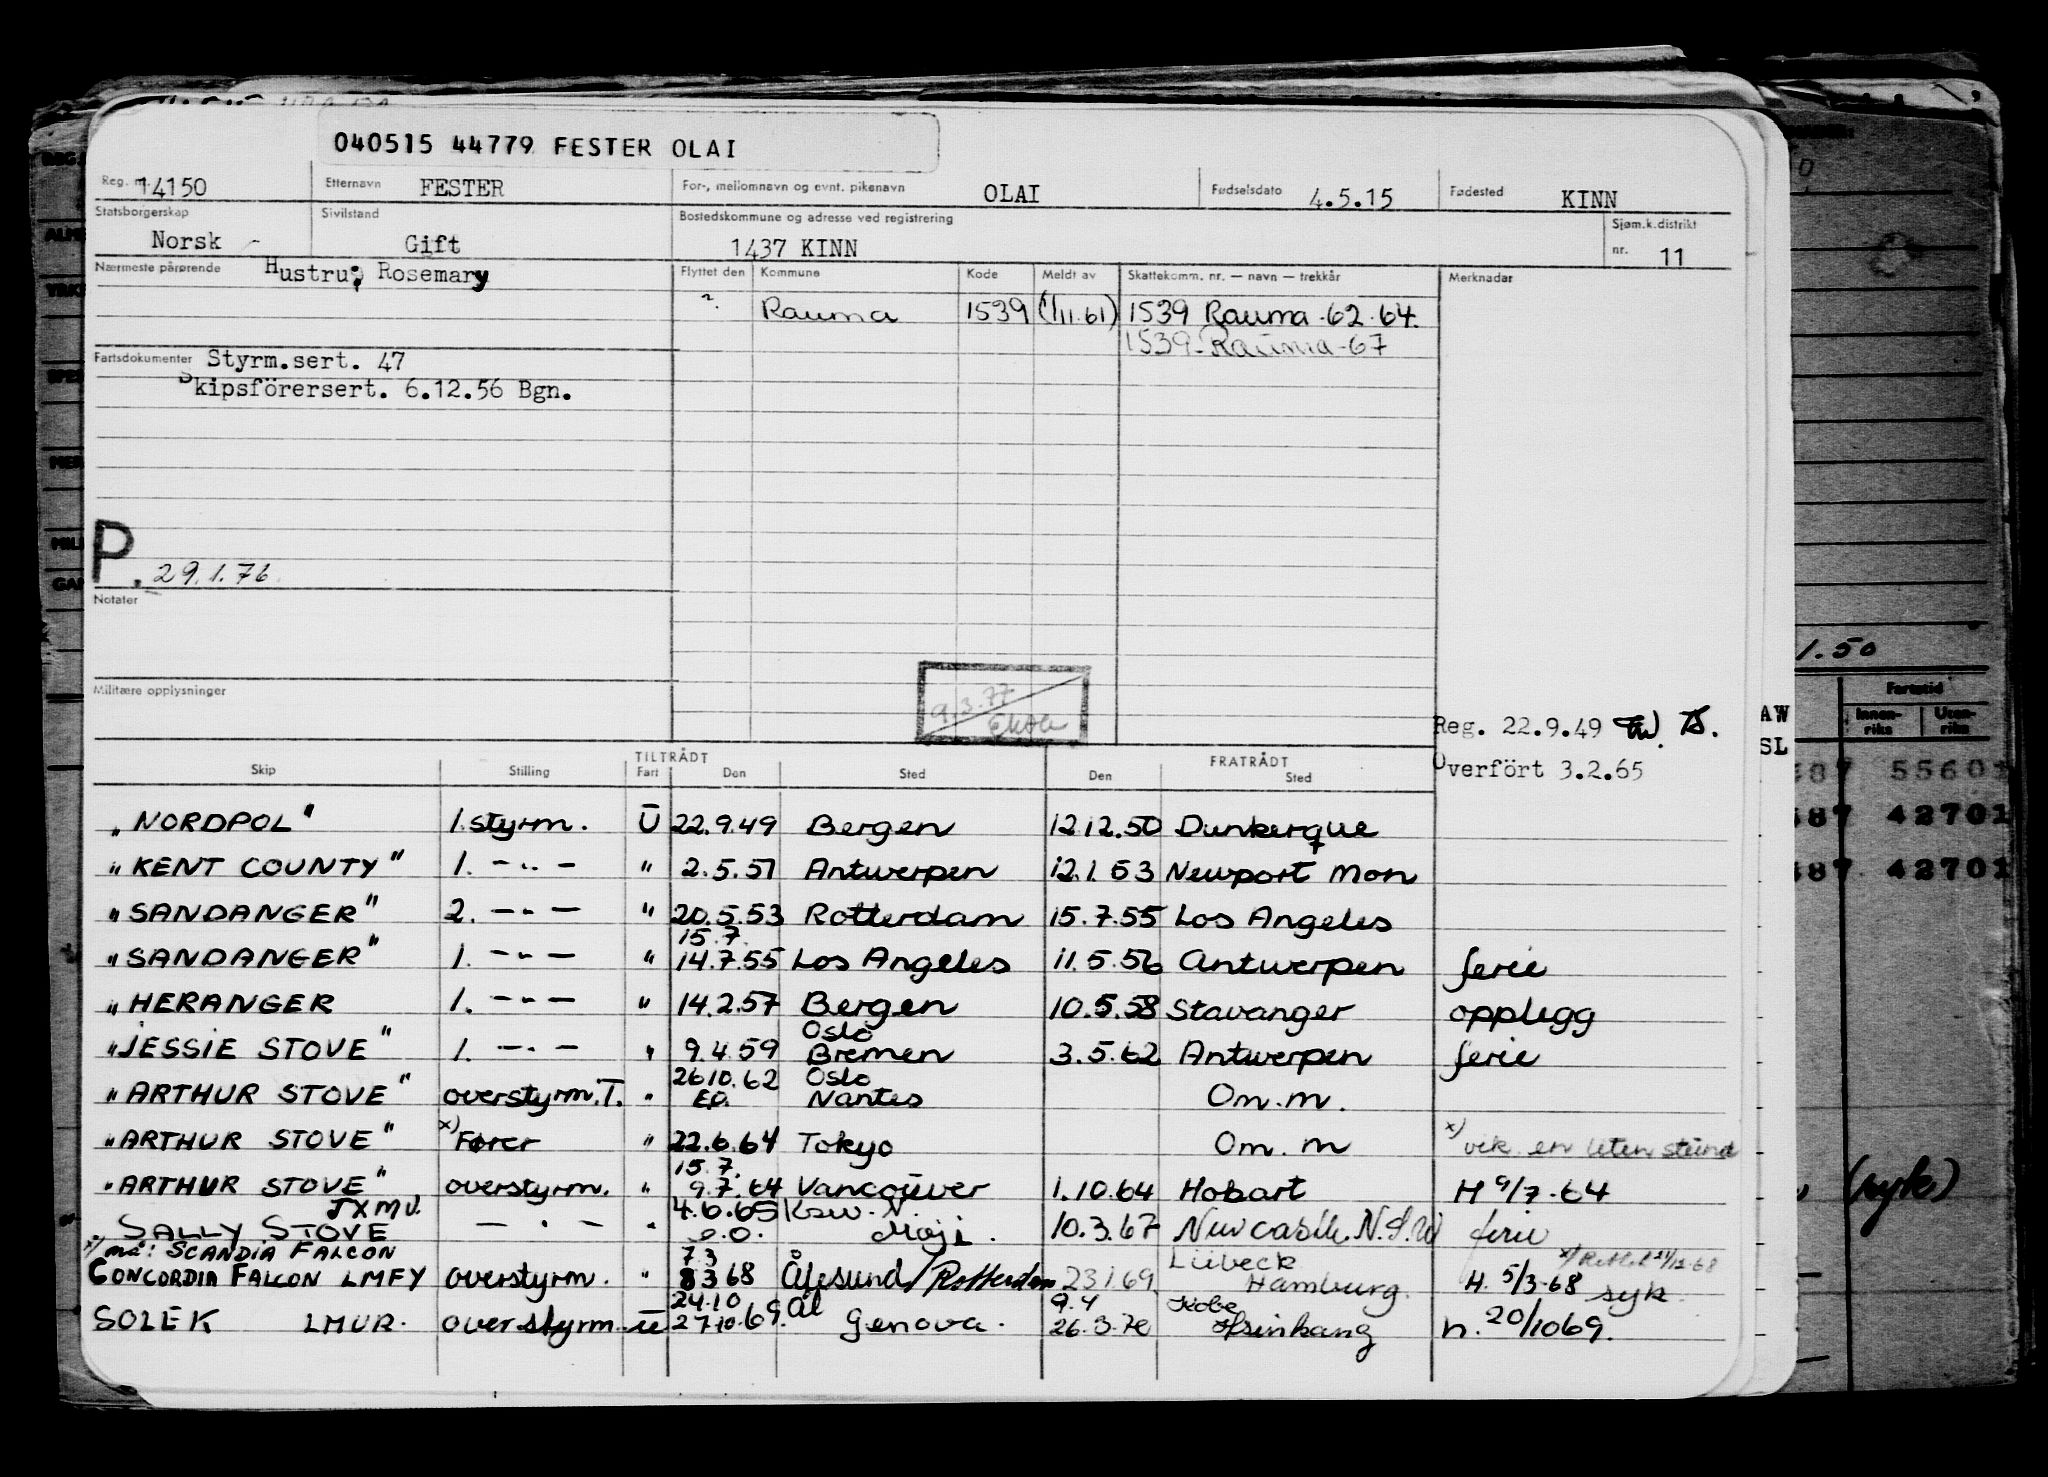 040515 44779 FESTER OLAI
Reg. nr. 14150 Etternavn FESTER For-, mellomnavn og evnt. pikenavn OLAI Fødselsdato 4.5.15 Fødested KINN
Statsborgerskap Norsk Sivilstand Gift Bostedskommune og adresse ved registrering 1437 KINN Sjøm.k.distrikt nr. 11
Nærmeste pårørende Hustru; Rosemary Flyttet den Kommune Kode Meldt av Skattekomm. nr. — navn — trekkår Merknader
Rauma 1539 (1/11.61) 1539 Rauma-62-64.
1539-Rauma-67
Fartsdokumenter Styrm.sert. 47
Skipsförersert. 6.12.56 Bgn.
P. 29.1.76
Notater
Militære opplysninger
9.3.77
Reg. 22.9.49
Overfört 3.2.65
TILTRÅDT FRATRÅDT
Skip Stilling Fart Den Sted Den Sted
"NORDPOL" 1.styrm. U 22.9.49 Bergen 12.12.50 Dunkerque
"KENT COUNTY" 1. -"- " 2.5.51 Antwerpen 12.1.53 Newport Mon
"SANDANGER" 2. -"- " 20.5.53 Rotterdam 15.7.55 Los Angeles
15.7.
"SANDANGER" 1. -"- " 14.7.55 Los Angeles 11.5.56 Antwerpen ferie
"HERANGER 1. -"- " 14.2.57 Bergen 10.5.58 Stavanger opplegg
Oslo
"JESSIE STOVE" 1. -"- " 9.4.59 Bremen 3.5.62 Antwerpen ferie
26.10.62 Oslo
"ARTHUR STOVE" overstyrm.T. " e.o. Nantes Om.m.
"ARTHUR STOVE" x) Fører " 22.6.64 Tokyo Om.m x) vik. en liten stund
15.7.
"ARTHUR STOVE" overstyrm. " 9.7.64 Vancouver 1.10.64 Hobart H 9/7-64
JXMV. 4.6.65
SALLY STOVE - " - " e.o. Moji. 10.3.67 Newcastle N.S.W ferie
x) nå: SCANDIA FALCON 7.3 Lübeck
CONCORDIA FALCON LMFY overstyrm. " 8.3 68 Ålesund/Rotterdam 23.1.69 Hamburg. H. 5/3-68 syk.
24.10 Ål 9.4 Kobe
SOLEK LMUR. overstyrm. U 27.10.69. Genova. 26.3.70 Hsinkang h. 20/10 69.
1.50
Fartstid
Innen-riks Uten-riks
AW
SL
487 55601
487 42701
487 42701
(syk)